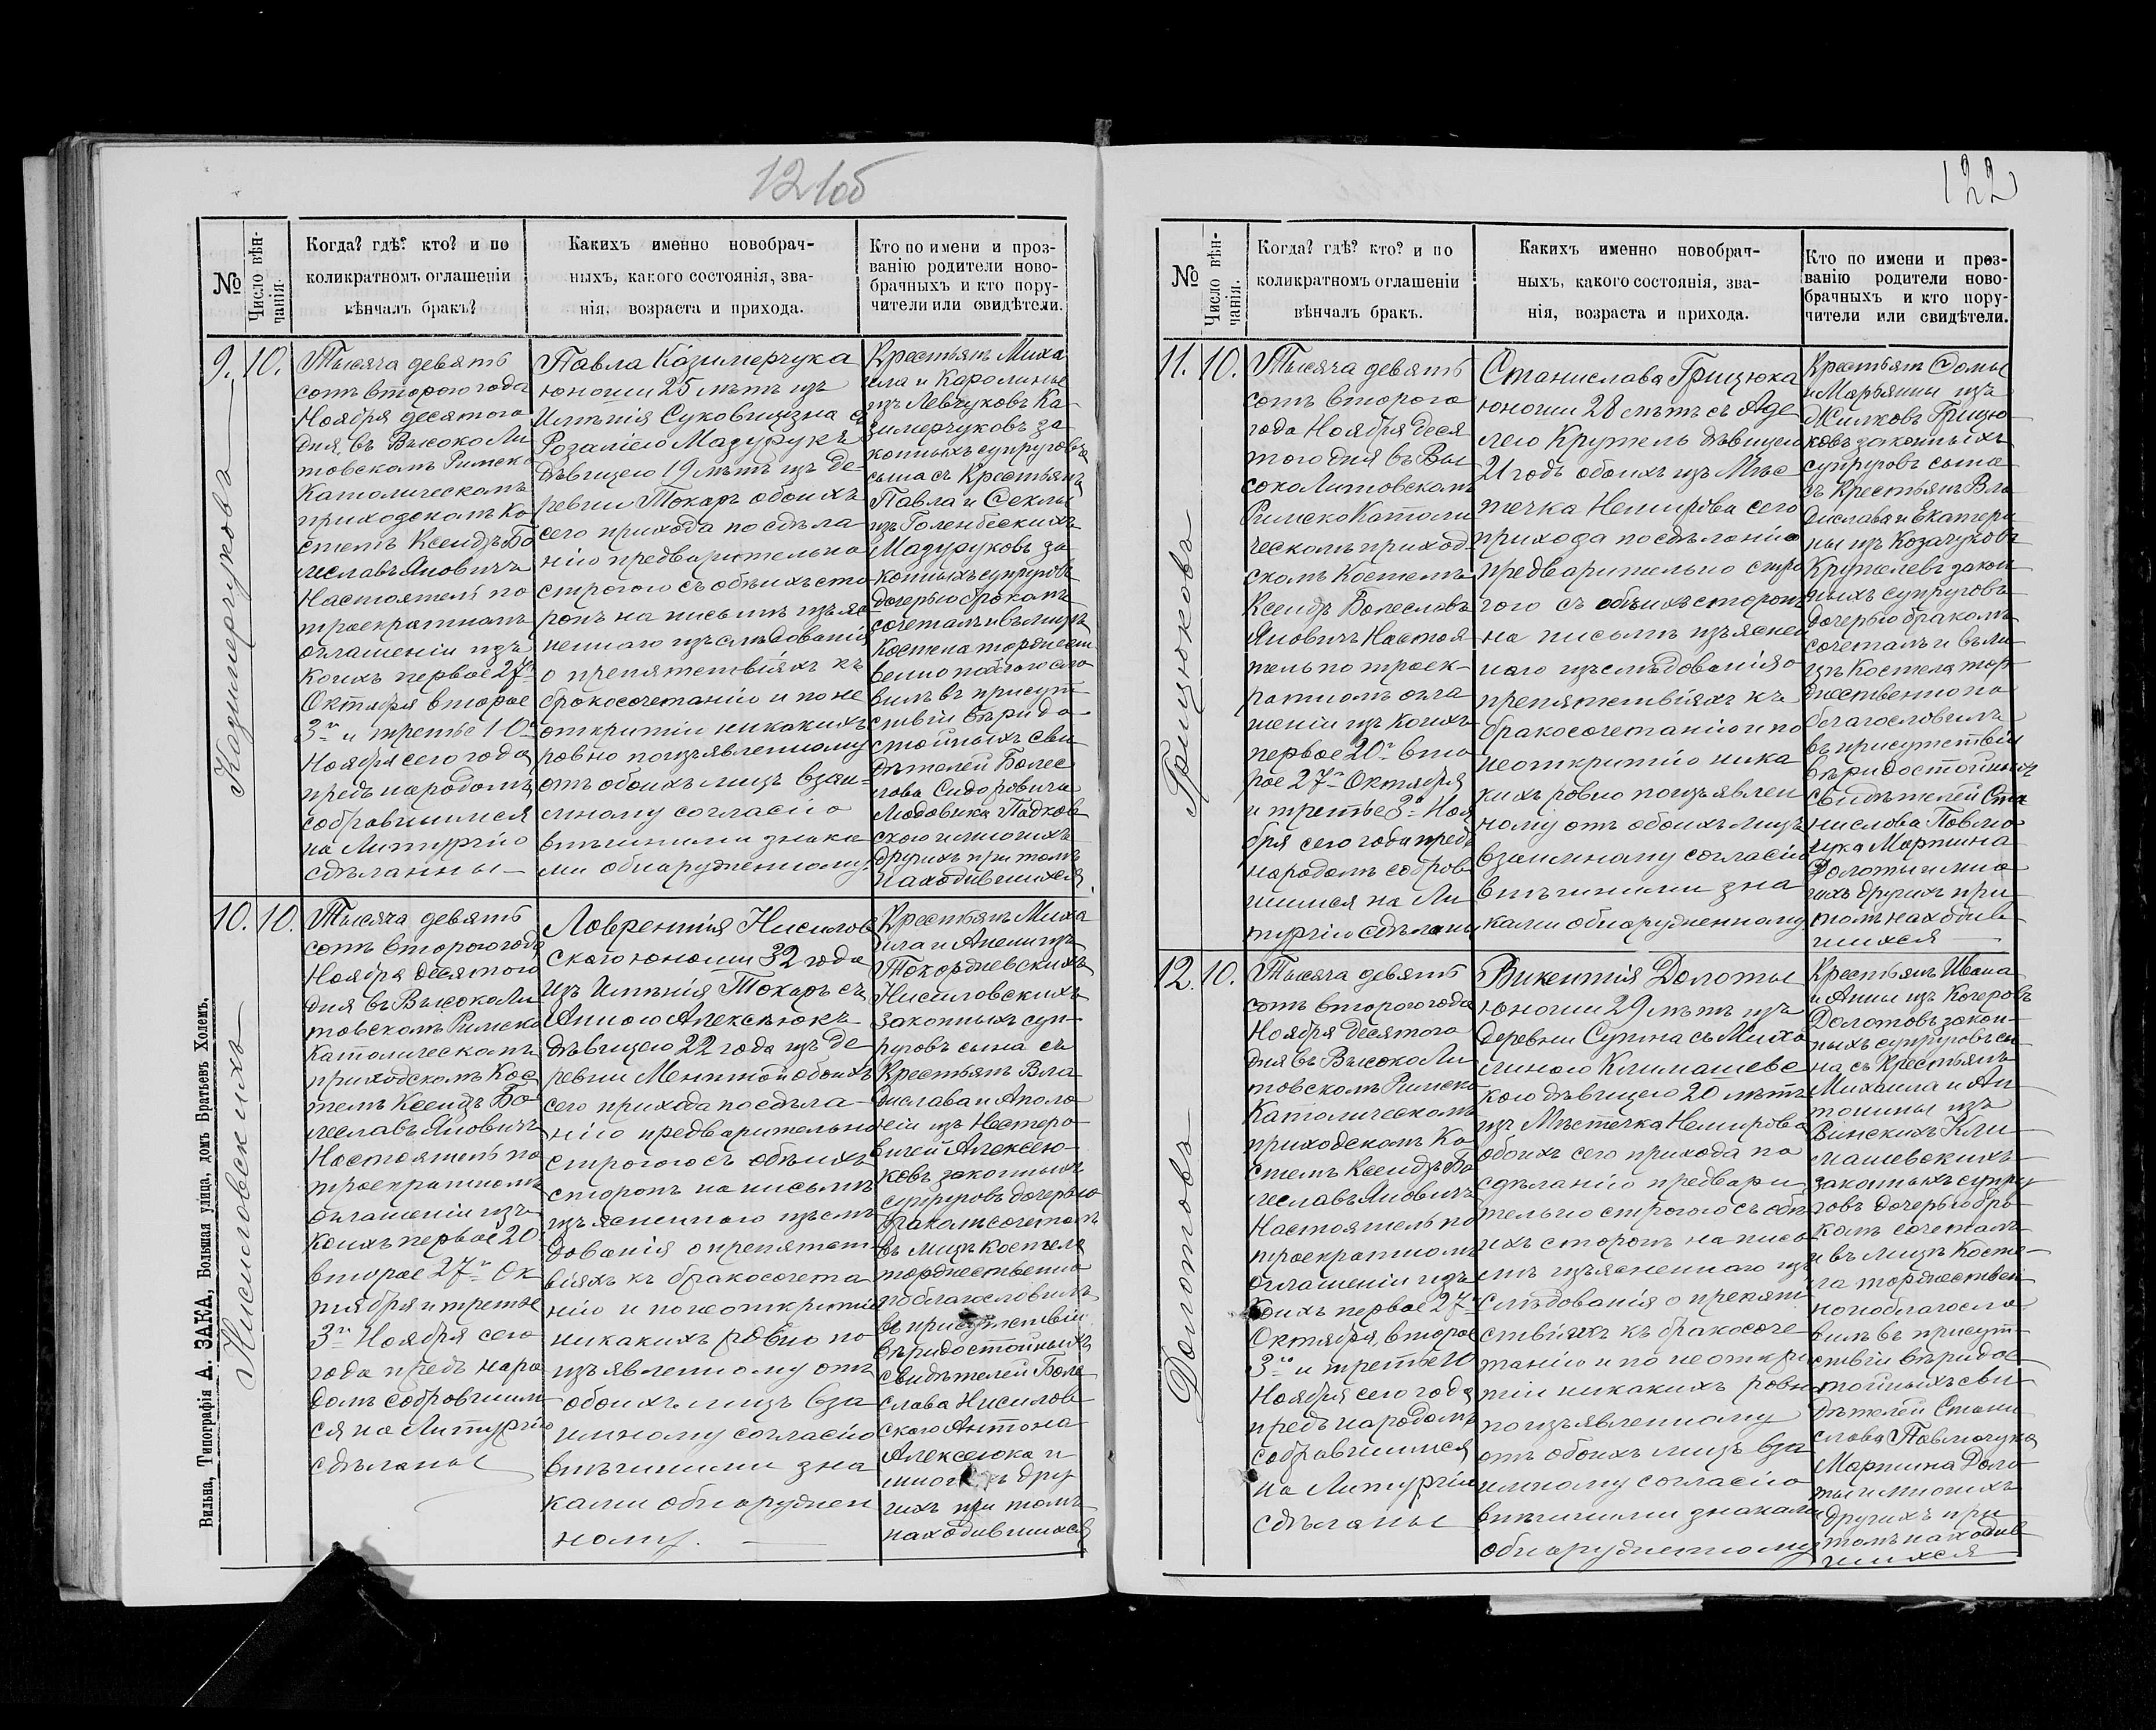 121об
№
Число вѣн-
чанія.
Когда? гдѣ? кто? и по
коликратномъ оглашеніи
вѣнчалъ бракъ?
Какихъ именно новобрач-
ныхъ, какого состоянія, зва-
нія, возраста и прихода.
Кто по имени и проз-
ванію родители ново-
брачныхъ и кто пору-
чители или свидѣтели.
9.
10.
Козимерчуковъ
Тысяча девять
сотъ второго года
Ноября десятого
дня въ Высоко Ли
товскомъ Римско
Католическомъ
приходскомъ Ко
стелѣ Ксендзъ Бо
леславъ Яновичъ
Настоятель по
троекратномъ
оглашеніи изъ
коихъ первое 27го
Октября второе
3го и третье 10го
Ноября сего года
предъ народомъ
собравшимся
на Литургію
сдѣланны
Павла Козимерчука
юноши 25 лѣтъ изъ
Имѣнія Суховщизна съ
Розаліею Мазурукъ
дѣвицею 19 лѣтъ изъ де-
ревни Токаръ обоихъ
сего прихода по сдѣла
нію предварительно
строгого съ обѣихъ сто
ронъ на письмѣ изъяс
неннаго изслѣдованія
о препятствіяхъ къ
бракосочетанію и по не
открытіи никакихъ
ровно по изъявленному
отъ обоихъ лицъ взаи-
мному согласію
внѣшними знака
ми обнаруженному.
Крестьянъ Миха
ила и Каролины
изъ Левчуковъ Ка-
зимерчуковъ за
конныхъ супруговъ
сына съ Крестьянъ
Павла и Феклы
изъ Голенбескихъ
Мазуруковъ за
конныхъ супруговъ
дочерью бракомъ
сочеталъ и въ лицѣ
Костела торжест
венно поблагосло
вилъ въ присут
ствіи вѣридо
стойныхъ сви
дѣтелей Болес
лава Сидоровича
Людовика Падков
скаго и многихъ
другихъ при томъ
находившихся
10.
10.
Нисиловскихъ
Тысяча девять
сотъ второго года
Ноября десятого
дня въ Высоко Ли
товскомъ Римско
Католическомъ
приходскомъ Кос
телѣ Ксендзъ Бо
леславъ Яновичъ
Настоятель по
троекратномъ
оглашеніи изъ
коихъ первое 20
второе 27го Ок
тября и третье
3го Ноября сего
года предъ наро
домъ собравшим
ся на Литургію
сдѣланы
Лаврентія Нисилов
скаго юноши 32 года
изъ Имѣнія Токаръ съ
Анною Алексѣюкъ
дѣвицею 22 года изъ де
ревни Ментной обоихъ
сего прихода по сдѣла-
нію предварительно
строгого съ обѣихъ
сторонъ на письмѣ
изъясненнаго изслѣ
дованія о препятст
віяхъ къ бракосочета
нію и по не открытіи
никакихъ ровно по
изъявленному отъ
обоихъ лицъ вза
имному согласію
внѣшними зна
ками обнаружен
ному.
Крестьянъ Миха
ила и Анели изъ
Токаржевскихъ
Нисиловскихъ
законныхъ суп-
руговъ сына съ
Крестьянъ Вла
дислава и Аполо
ніи изъ Нестеро
вичей Алексею-
ковъ законныхъ
супруговъ дочерью
бракомъ сочеталъ
въ лицѣ Костела
торжественно
поблагословилъ
въ присутствіи
вѣридостойныхъ
свидѣтелей Боле
слава Нисилов
скаго Антона
Алексеюка и
многихъ дру
гихъ при томъ
находившихся
Вильна, Типографія А. ЗАКА, Большая улица, домъ Братьевъ Холемъ.
122
№
Число вѣн-
чанія.
Когда? гдѣ? кто? и по
коликратномъ оглашеніи
вѣнчалъ бракъ.
Какихъ именно новобрач-
ныхъ, какого состоянія, зва-
нія, возраста и прихода.
Кто по имени и проз-
ванію родители ново-
брачныхъ и кто пору-
чители или свидѣтели.
11.
10.
Грицюковъ
Тысяча девять
сотъ второго
года Ноября деся
того дня въ Вы
соко Литовскомъ
Римско Католи
ческомъ приход
скомъ Костелѣ
Ксендзъ Болеславъ
Яновичъ Настоя
тель по троек-
ратномъ огла
шеніи изъ коихъ
первое 20го вто
рое 27го Октября
и третье 3го Ноя
бря сего года предъ
народомъ собрав
шимся на Ли
тургію сдѣланы
Станислава Грицюка
юноши 28 лѣтъ съ Аде
лею Крутель дѣвицею
21 годъ обоихъ изъ Мѣс
течка Немирова сего
прихода по сдѣланію
предварительно стро
гого съ обѣихъ сторонъ
на письмѣ изъяснен
наго изслѣдованія о
препятствіяхъ къ
бракосочетанію и по
неоткрытію ника
кихъ ровно по изъявлен
ному отъ обоихъ лицъ
взаимному согласію
внѣшними зна
ками обнаруженному
Крестьянъ Фомы
и Марьянны изъ
Жилковъ Грицю
ковъ законныхъ
супруговъ сына
съ Крестьянъ Вла
дислава и Екатери
ны изъ Козачуковъ
Крутелевъ закон
ныхъ супруговъ
дочерью бракомъ
сочеталъ и въ ли
цѣ Костела тор
жественно по
благословилъ
въ присутствіи
вѣридостойныхъ
свидѣтелей Ста
нислава Павлю
чука Мартина
Долоты и мно
гихъ другихъ при
томъ находив
шихся
12.
10.
Долотовъ
Тысяча девять
сотъ второго года
Ноября десятого
дня въ Высоко Ли
товскомъ Римско
Католическомъ
приходскомъ Ко
стелѣ Ксендзъ Бо
леславъ Яновичъ
Настоятель по
троекратномъ
оглашеніи изъ
коихъ первое 27го
Октября, второе
3го и третье 10
Ноября сего года
предъ народомъ
собравшимся
на Литургію
сдѣланы
Викентія Долоты
юноши 29 лѣтъ изъ
деревни Сутна съ Миха
линою Климашевс
кою дѣвицею 20 лѣтъ
изъ Мѣстечка Немирова
обоихъ сего прихода по
сдѣланію предвари
тельно строгого съ обѣ
ихъ сторонъ на пись
мѣ изъясненнаго из
слѣдованія о препят
ствіяхъ къ бракосоче
танію и по не откры
тіи никакихъ ровно
по изъявленному
отъ обоихъ лицъ вза
имному согласію
внѣшними знаками
обнаруженному
Крестьянъ Ивана
и Анны изъ Кочеровъ
Долотовъ закон-
ныхъ супруговъ сы
на съ Крестьянъ
Михаила и Ан
тонины изъ
Винскихъ Кли
машевскихъ
законныхъ супру
говъ дочерью бра
комъ сочеталъ
и въ лицѣ Косте-
ла торжествен
но поблагосло
вилъ въ присут
ствіи вѣридос
тойныхъ сви
дѣтелей Стани
слава Павлючука
Мартина Доло
ты и многихъ
другихъ при
томъ находив
шихся